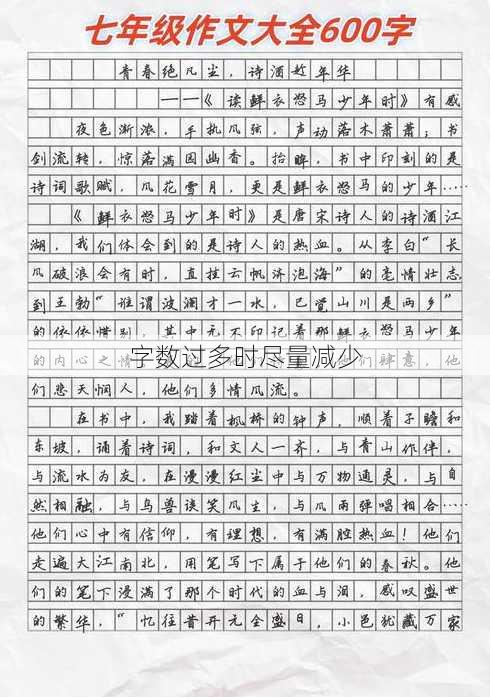 七年级作文大全600字
青春绝凡尘，诗酒趁年华
——《读鲜衣怒马少年时》有感
夜色渐浓，手执风弦，声动落木萧萧；书
剑流转，惊落满园幽香。抬眸，书中印刻的是
诗词歌赋，风花雪月，更是鲜衣怒马的少年……
《鲜衣怒马少年时》是唐宋诗人的诗酒江
湖，我们体会到的是诗人的热血。从李白“长
风破浪会有时，直挂云帆济沧海”的豪情壮志
到王勃“谁谓波澜才一水，已觉山川是两乡”
的依依惜别，其中无不印记着那鲜衣怒马少年
的内心之情
字数过多时尽量减少
们肆意，他
们悲天悯人，他们多情风流。
在书中，我踏着枫桥的钟声，顺着子瞻和
东坡，诵着诗词，和文人一齐，与青山作伴，
与流水为友，在漫漫红尘中与万物通灵，与自
然相融，与鸟兽谈笑风生，与风雨弹唱相合……
他们心中有信仰，有理想，有满腔热血！他们
走遍大江南北，用笔写下属于他们的春秋。他
们的笔下浸满了那个时代的血与泪，感叹盛世
的繁华，“忆往昔开元全盛日，小邑犹藏万家